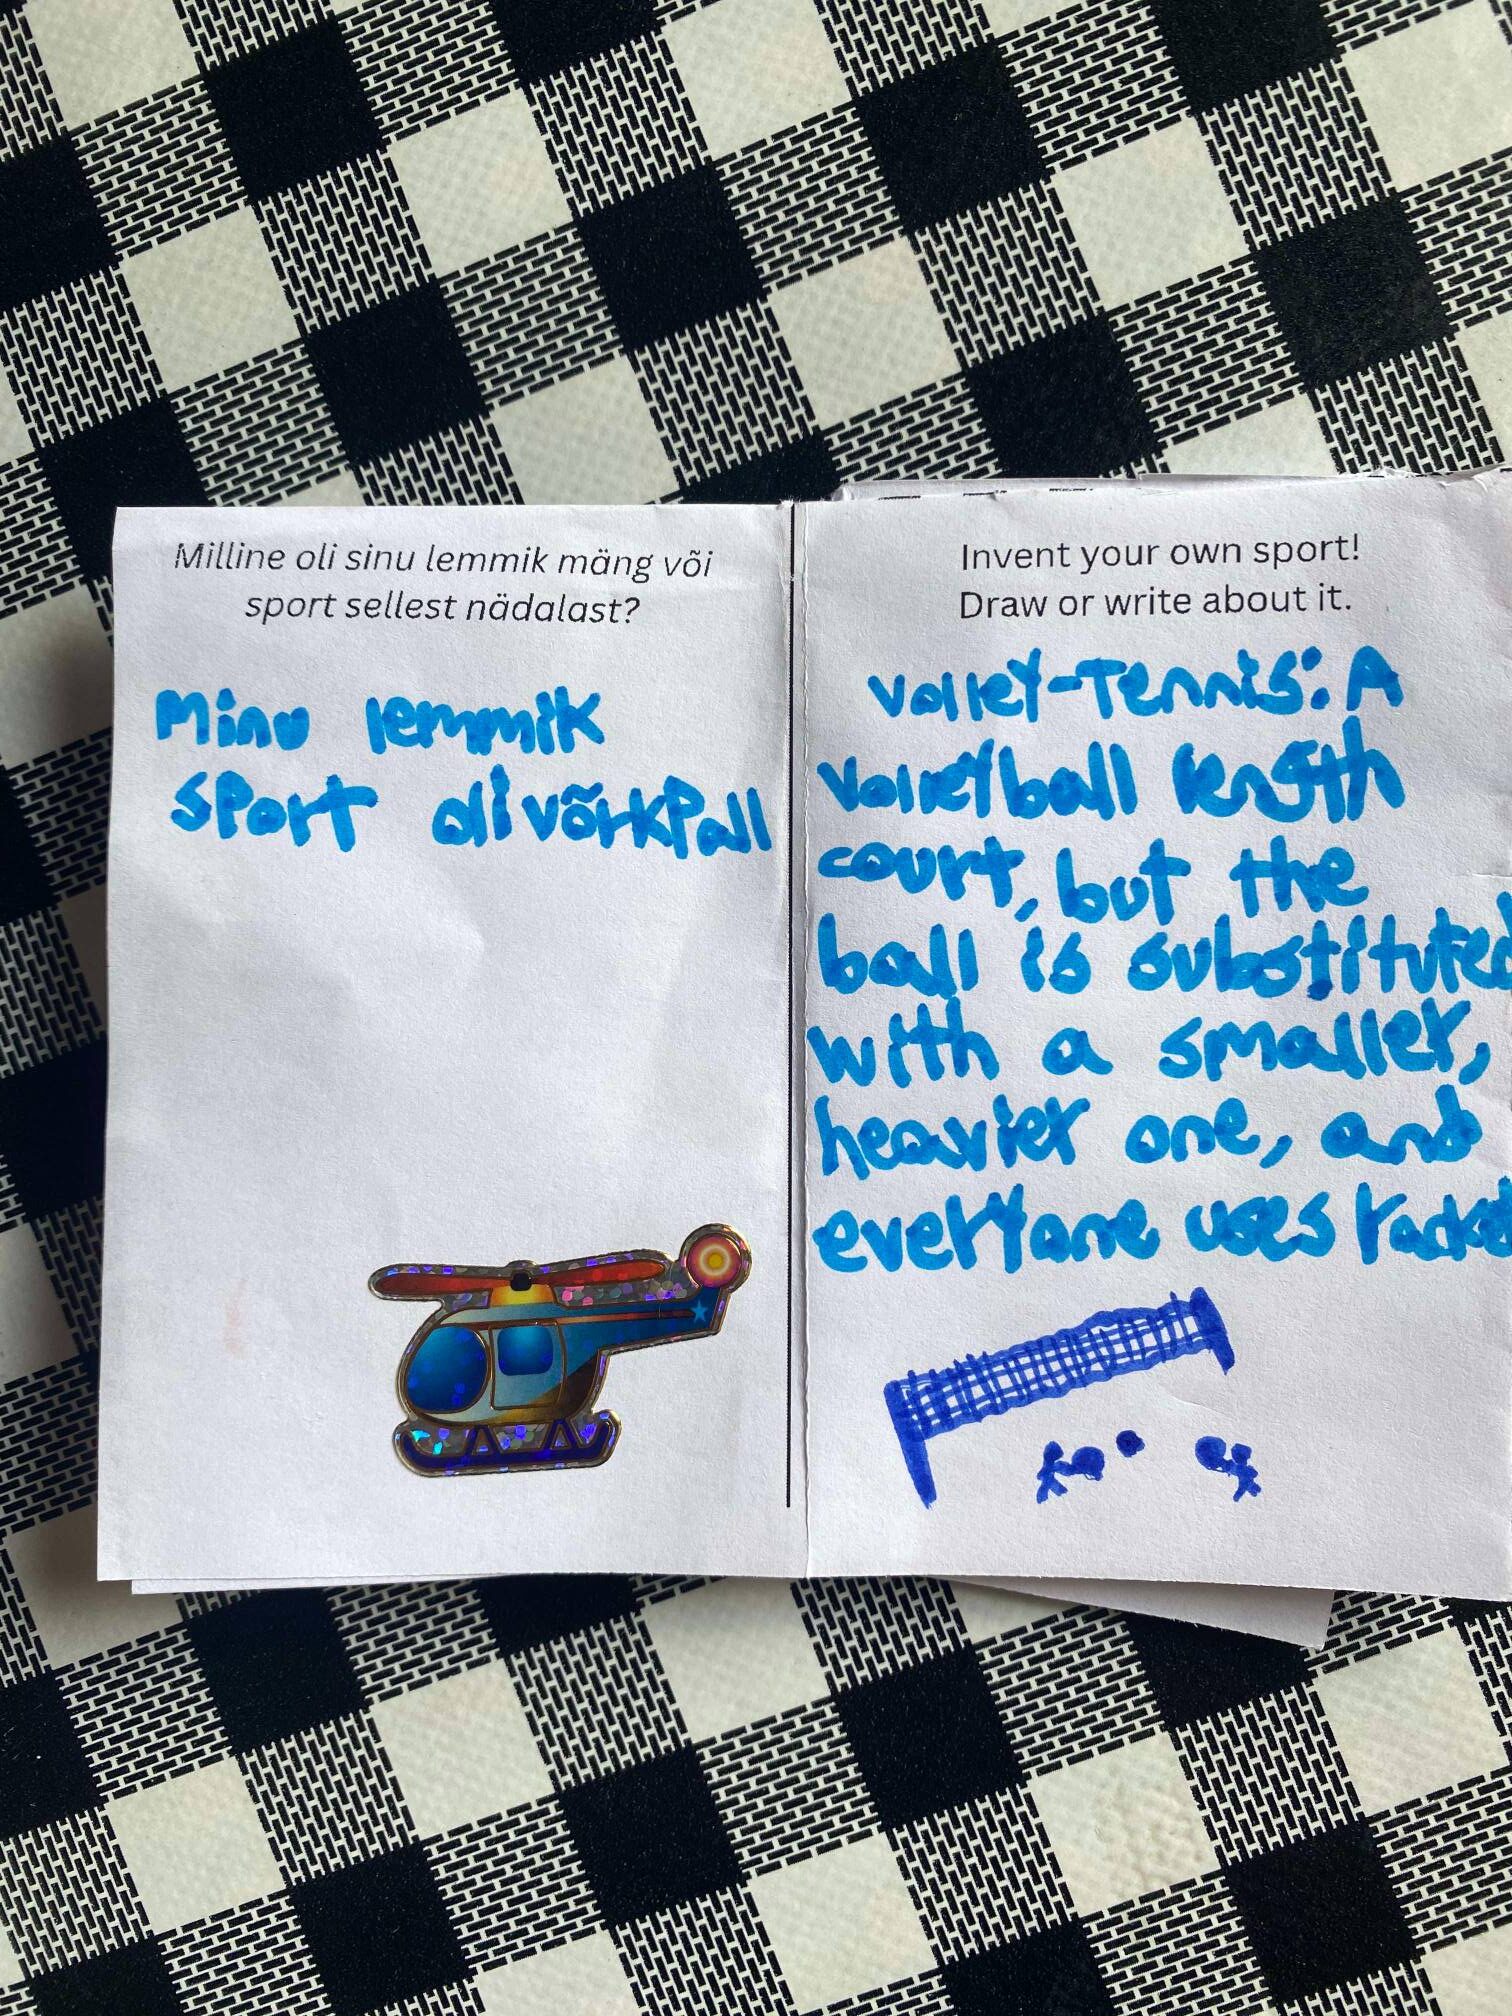 Milline oli sinu lemmik mäng või
sport sellest nädalast?
Minu lemmik
sport oli võrkpall
Invent your own sport!
Draw or write about it.
Volley-Tennis: A
volleyball length
court, but the
ball is substituted
with a smaller,
heavier one, and
everyone uses